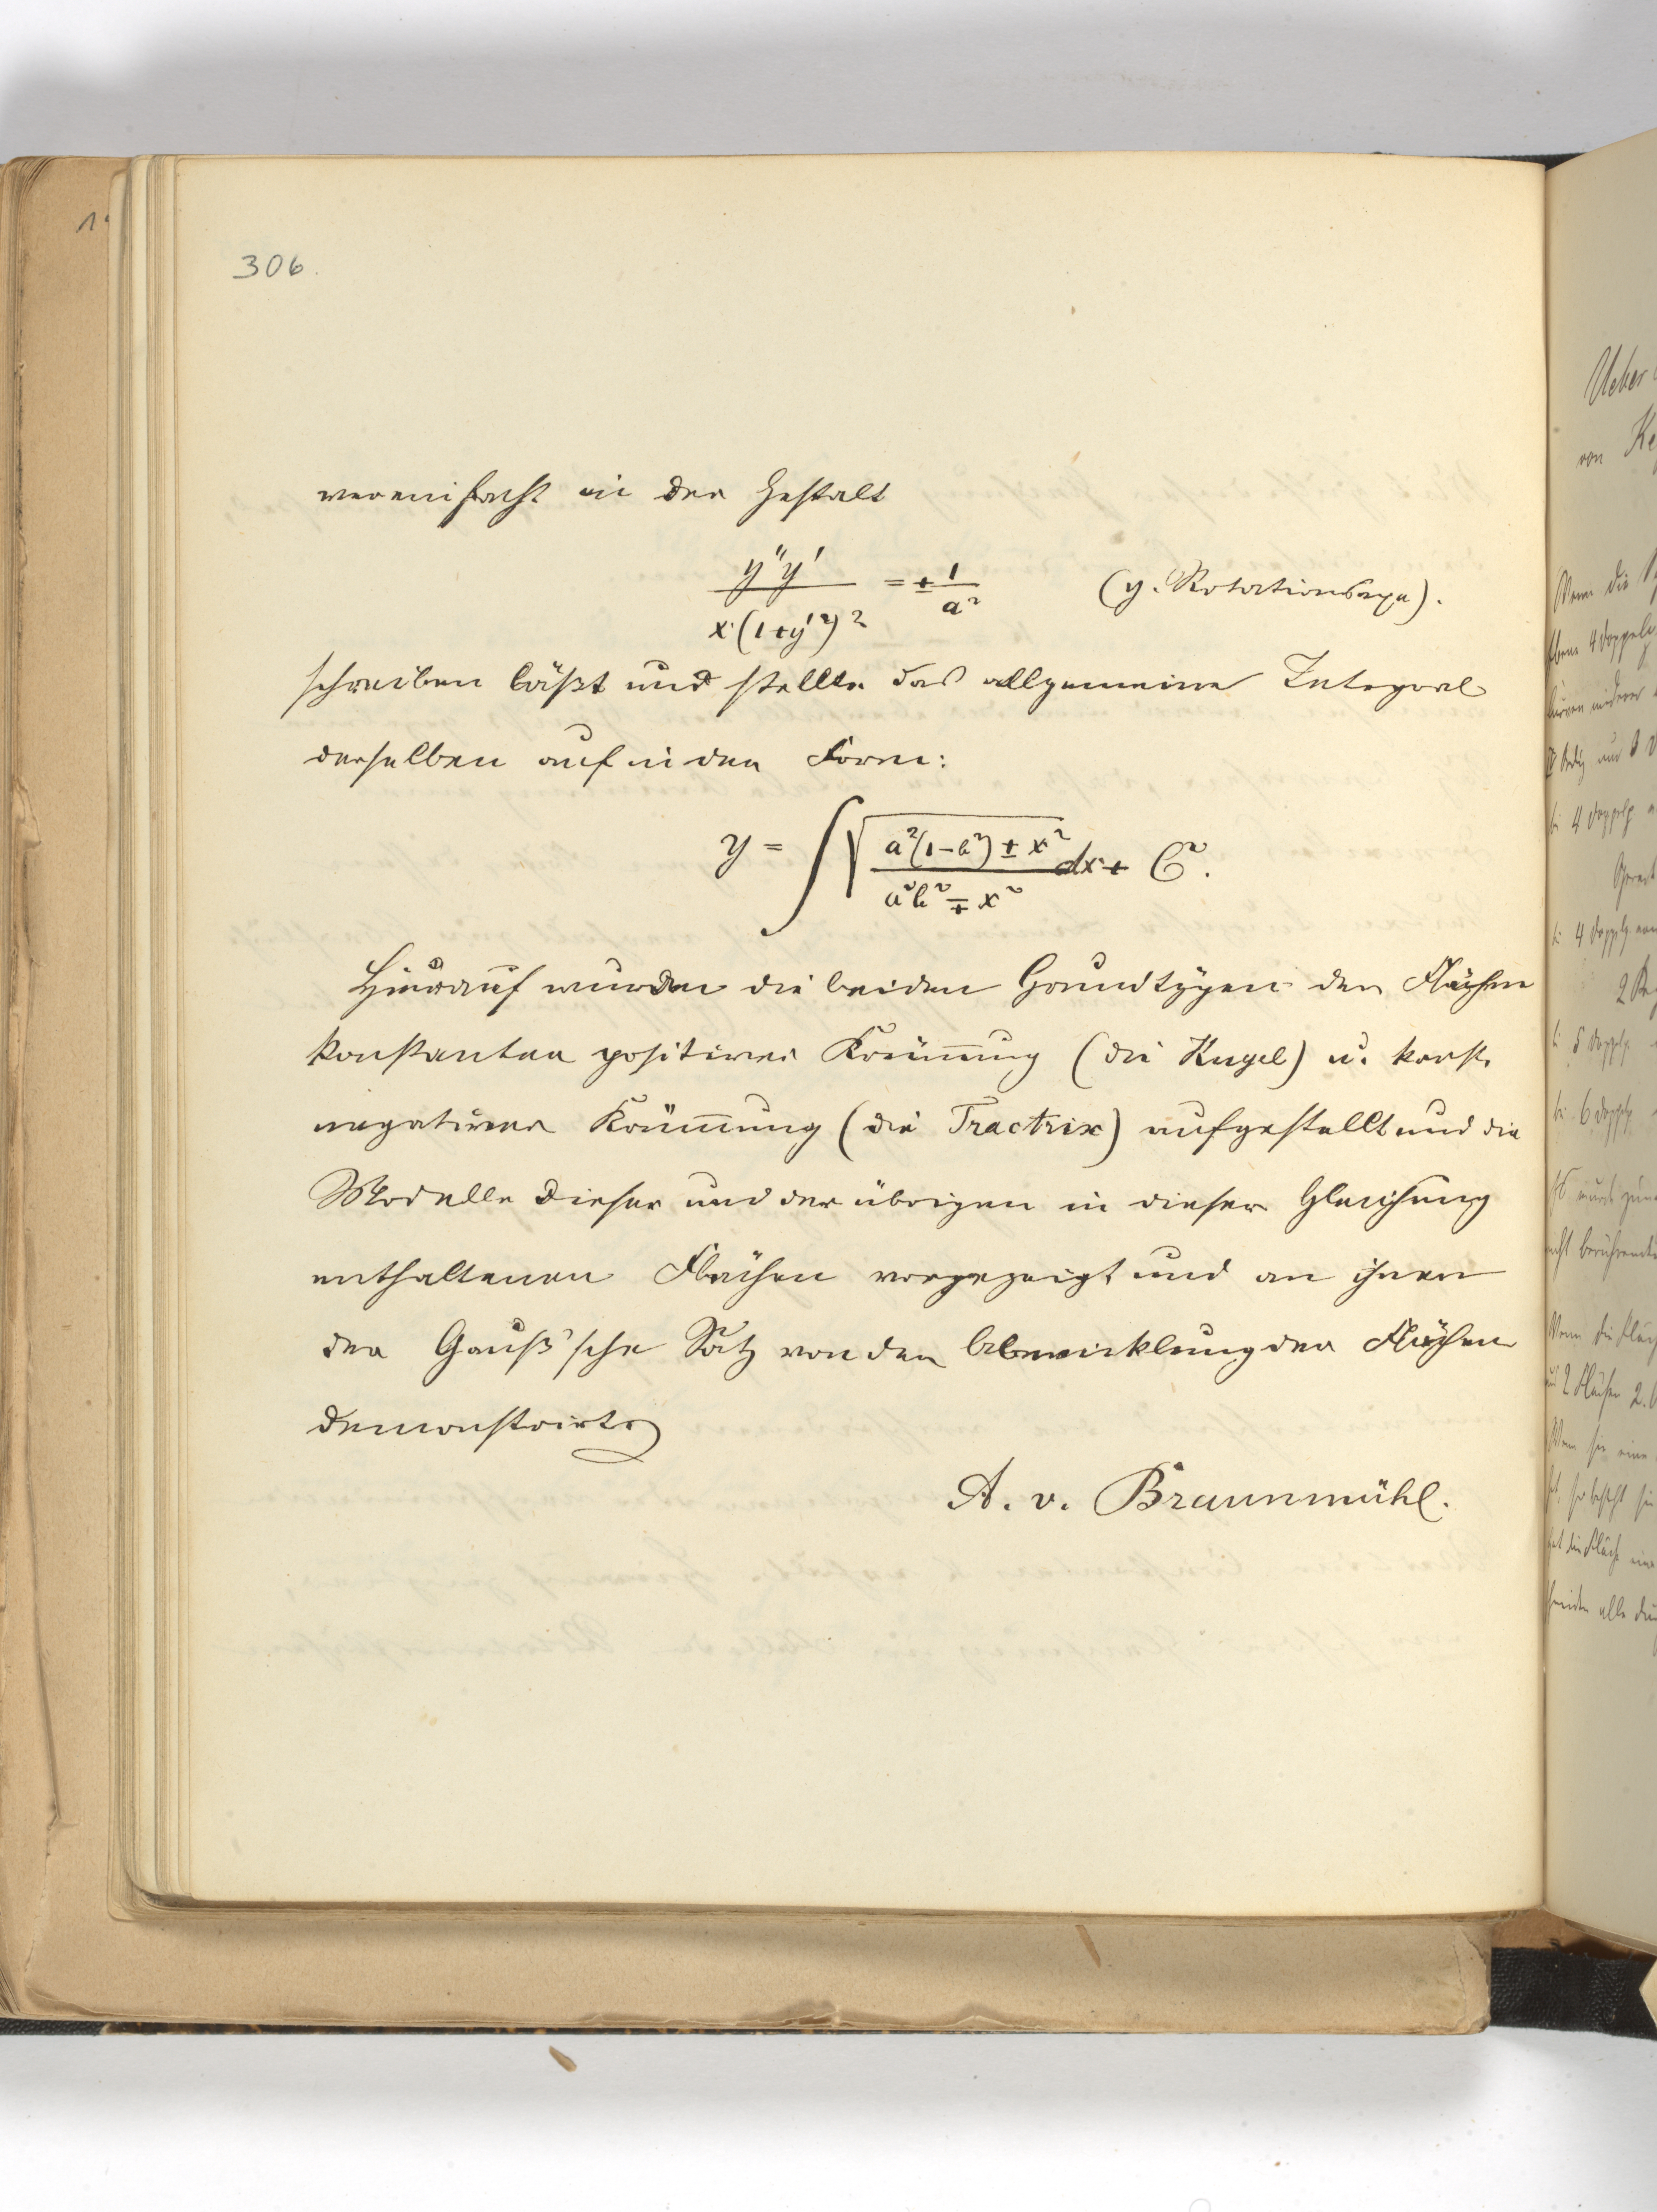 306.
vereinfacht in der Gestalt
y''y' / x·(1+y'²)² = ± 1/a² (y. Rotationsaxe).
schreiben läßt und stellte das allgemeine Integral
derselben auf in der Form:
y = ∫ √ a²(1-b²) ± x² / a²b² ∓ x² dx + C.
Hierauf wurden die beiden Grundtypen der Flächen
konstanter positiver Krüm̅ung (die Kugel) u. konst.
negativer Krüm̅ung (die Tractrix) aufgestellt und die
Modelle dieser und der übrigen in dieser Gleichung
enthaltenen Flächen vorgezeigt und an ihnen
der Gauß'sche Satz von der Abwicklung der Flächen
demonstrirt.
A. v. Braunmühl.
Ueber
von
Wenn die